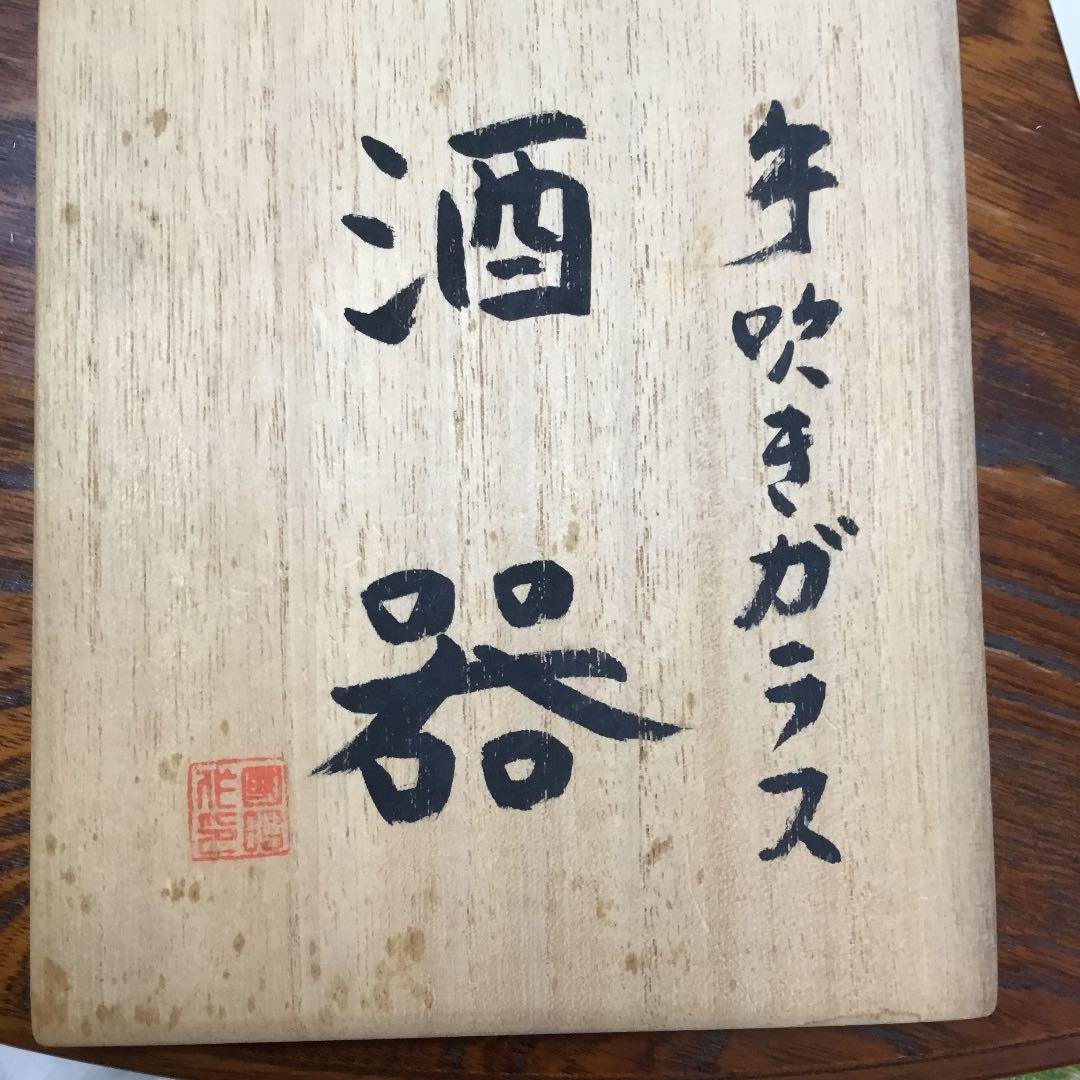 手吹きガラス
酒器